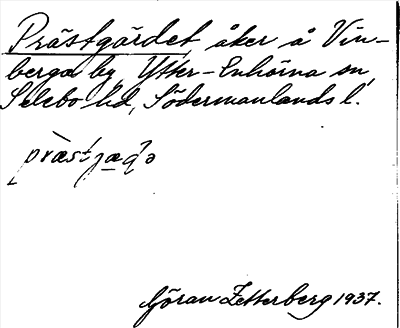 Prästgärdet åker å Vin-
berga by Ytter-Enhörna sn,
Selebo hd, Södermanlands l.
Göran Zetterberg 1937.